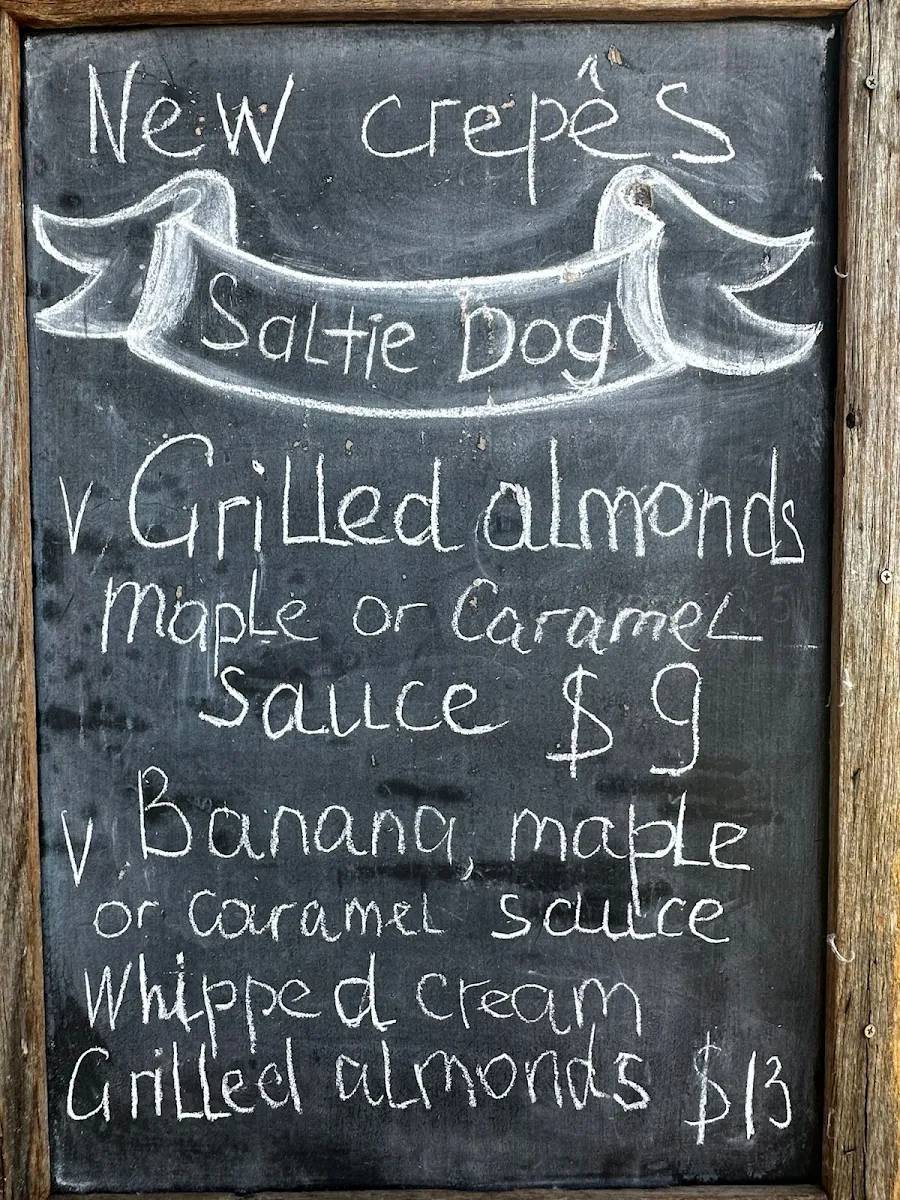 New crepês
Saltie Dog
v Grilled almonds
maple or Caramel
sauce $9
v Banana, maple
or caramel sauce
Whipped cream
Grilled almonds $13